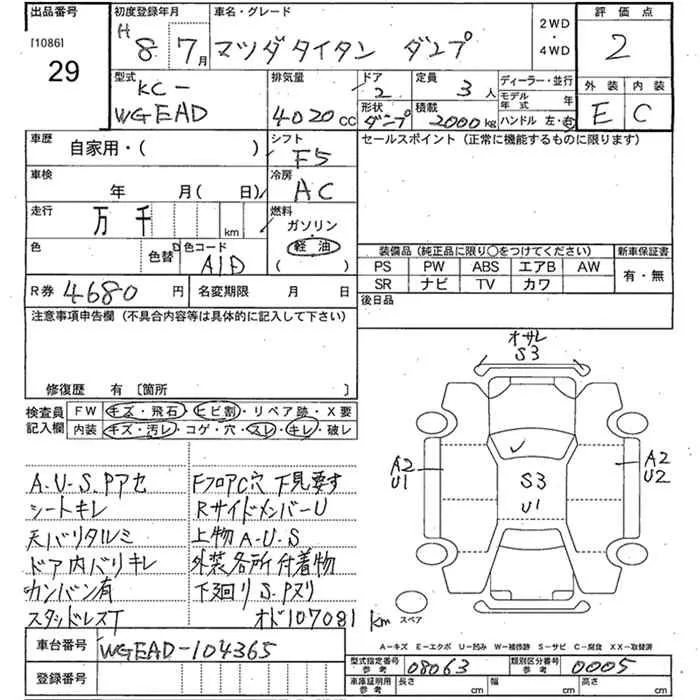 出品番号 初度登録年月 車名・グレード 2WD ・ 4WD 評価点
[1086] 29
H 8 7月 マツダタイタン ダンプ 2
型式 排気量 ドア 定員 ディーラー・並行 外装 内装
KC- WGEAD 4020cc 2 3人 モデル年式 年 E C
形状 積載 ハンドル 左・右
ダンプ 2000kg
車歴 シフト セールスポイント(正常に機能するものに限ります)
自家用・( ) F5
車検 年 月( 日) 冷房 AC
走行 万 千 km 燃料 ガソリン
軽油
( )
色 色替 色コード A1D
装備品(純正品に限り○をつけてください) 新車保証書
PS PW ABS エアB AW 有・無
SR ナビ TV カワ
R券 4680円 名変期限 月 日 後日品
注意事項申告欄(不具合内容等は具体的に記入して下さい)
修復歴 有 [箇所 ]
検査員記入欄 FW キズ・飛石・ヒビ割・リペア跡・X要
内装 キズ・汚レ・コゲ・穴・スレ・キレ・破レ
オサレ
S3
A2 U1
S3
U1
A2 U2
A.U.S.Pアセ FフロアC穴 下見要す
シートキレ RサイドメンバーU
天バリタルミ 上物A.U.S
ドア内バリキレ 外装各所付着物
カンバン有 下廻りS.Pヌリ
スタッドレスT オド107081km
スペア
車台番号 WGEAD-104365
A-キズ E-エクボ U-凹み W-補修跡 S-サビ C-腐食 XX-取替済
型式指定番号 参考 08063 類別区分番号 参考 0005
登録番号 車庫証明用 参考 長さ cm 幅 cm 高さ cm